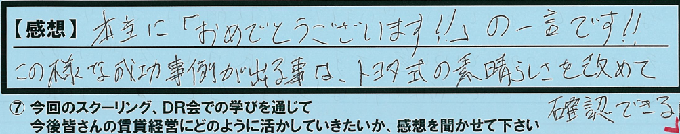 【感想】 本当に「おめでとうございます!!」の一言です!!
この様な成功事例が出る事は、トヨタ式の素晴らしさを改めて
確認できる
⑦ 今回のスクーリング、DR会での学びを通じて
今後皆さんの賃貸経営にどのように活かしていきたいか、感想を聞かせて下さい